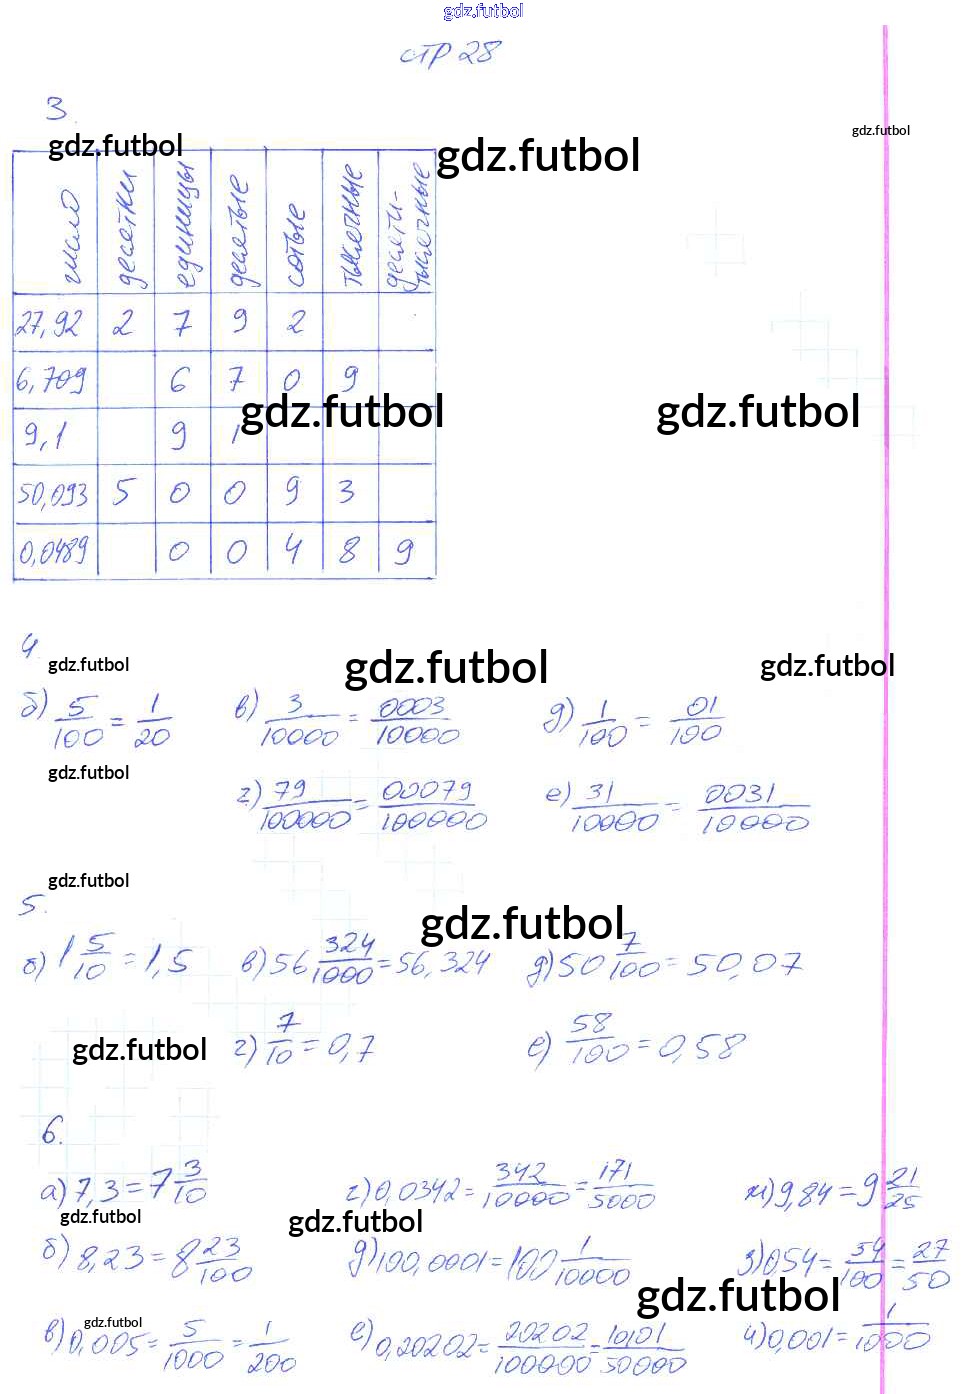 gdz.futbol
стр 28
3.
gdz.futbol gdz.futbol gdz.futbol
число десятки единицы десятые сотые тысячные десяти-тысячные
27,92 2 7 9 2
6,709 6 7 0 9
gdz.futbol gdz.futbol
9,1 9 1
50,093 5 0 0 9 3
0,0489 0 0 4 8 9
4
gdz.futbol gdz.futbol gdz.futbol
б) 5/100 = 1/20 в) 3/10000 = 0003/10000 д) 1/100 = 01/100
gdz.futbol
г) 79/100000 = 00079/100000 е) 31/10000 = 0031/10000
gdz.futbol
5.
gdz.futbol
б) 1 5/10 = 1,5 в) 56 324/1000 = 56,324 д) 50 7/100 = 50,07
gdz.futbol
г) 7/10 = 0,7 е) 58/100 = 0,58
6.
а) 7,3 = 7 3/10 г) 0,0342 = 342/10000 = 171/5000 ж) 9,84 = 9 21/25
gdz.futbol gdz.futbol
б) 8,23 = 8 23/100 д) 100,0001 = 100 1/10000 з) 054 = 54/100 = 27/50
gdz.futbol
gdz.futbol
в) 0,005 = 5/1000 = 1/200 е) 0,20202 = 20202/100000 = 10101/50000 и) 0,001 = 1/1000